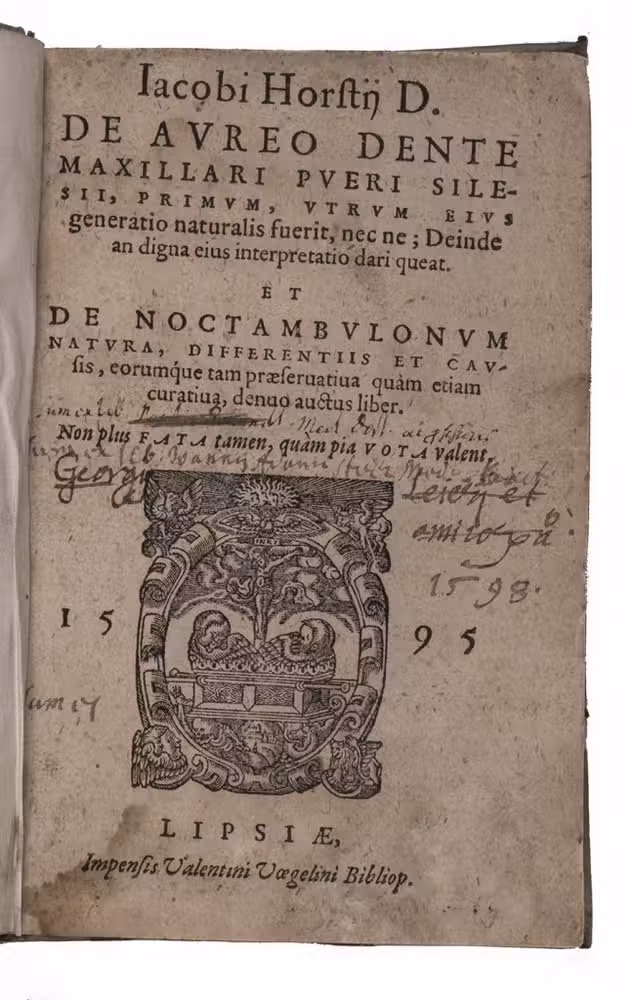 Iacobi Horstij D.
DE AVREO DENTE
MAXILLARI PVERI SILE-
SII, PRIMVM, VTRVM EIVS
generatio naturalis fuerit, nec ne; Deinde
an digna eius interpretatio dari queat.
ET
DE NOCTAMBVLONVM
NATVRA, DIFFERENTIIS ET CAV-
sis, eorumque tam præseruatiua quàm etiam
curatiua, denuo auctus liber.
Non plus FATA tamen, quàm pia VOTA valent.
Georg
amico
1598.
15 95
sum ex
LIPSIÆ,
Impensis Valentini Vœgelini Bibliop.